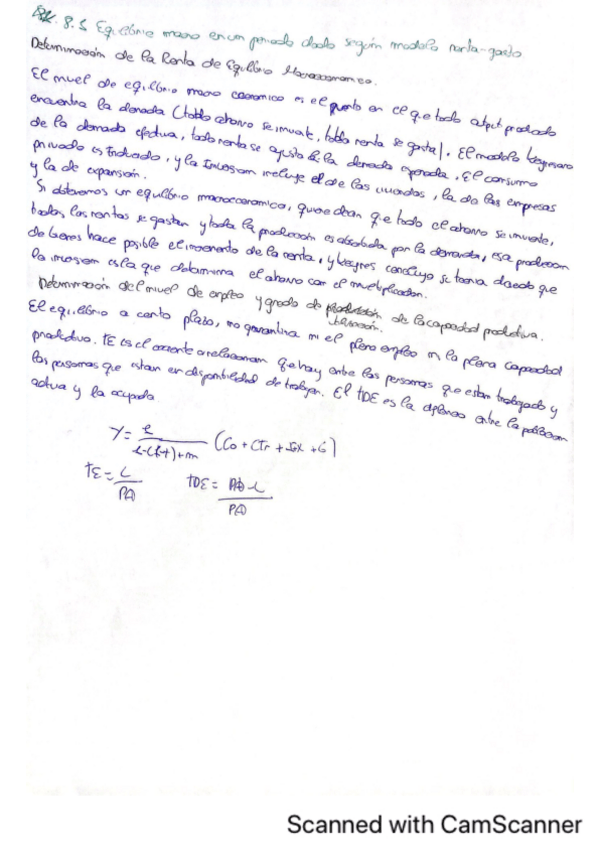 8.5 Equilibrio macro en un periodo dado según modelo renta-gasto
Determinación de la Renta de Equilibrio Macroeconomico.
El nivel de equilibrio macro economico es el punto en el que todo output producido
encuentra la demanda (todo ahorro se invierte, toda renta se gasta). El modelo keynesiano
de la demanda efectiva, toda renta se ajusta a la demanda esperada. El consumo
privado es Inducido, y la Inversion incluye el de las viviendas, la de las empresas
y la de expansión.
Si obtenemos un equilibrio macroeconomico, quiere decir que todo el ahorro se invierte,
todas las rentas se gastan y toda la producción es absorbida por la demanda, esa produccion
de bienes hace posible el incremento de la renta, y keynes concluyo su teoria diciendo que
la inversion es la que determina el ahorro con el multiplicador.
Determinación del nivel de empleo y grado de utilización de la capacidad productiva.
El equilibrio a corto plazo, no garantiza ni el pleno empleo ni la plena capacidad
productiva. TE es el cociente o relacionam que hay entre las personas que estan trabajando y
las personas que estan en disponibilidad de trabajar. El TDE es la diferencia entre la poblacion
activa y la ocupada
Y = 1 / 1-c(1-t)+m (Co + CTr + Ix + G)
TE = L / PA TDE = PA - L / PA
Scanned with CamScanner